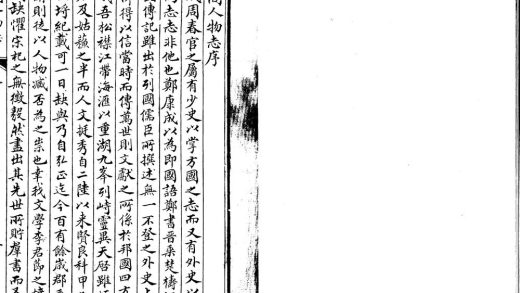 人物志序
周春官之屬有少史以掌方國之志而又有外史以
志志非他也鄭康成以為即國語鄭書晉乘楚檮
傳記雖出於列國儒臣所撰述無一不登之外史上
得以信當時而傳萬世則文獻之所係於邦國四方
吾松襟江帶海滙以重湖九峯列峙靈異天啓雖
及姑蘇之半而人文挺秀自二陸以來賢良科甲
紀載可一日缺與乃自弘正迄今百有餘歲郡
則徒以人物臧否為之祟也幸我文學李君節之
缺懼宋杞之無徵毅然盡出其先世所貯羣書而又